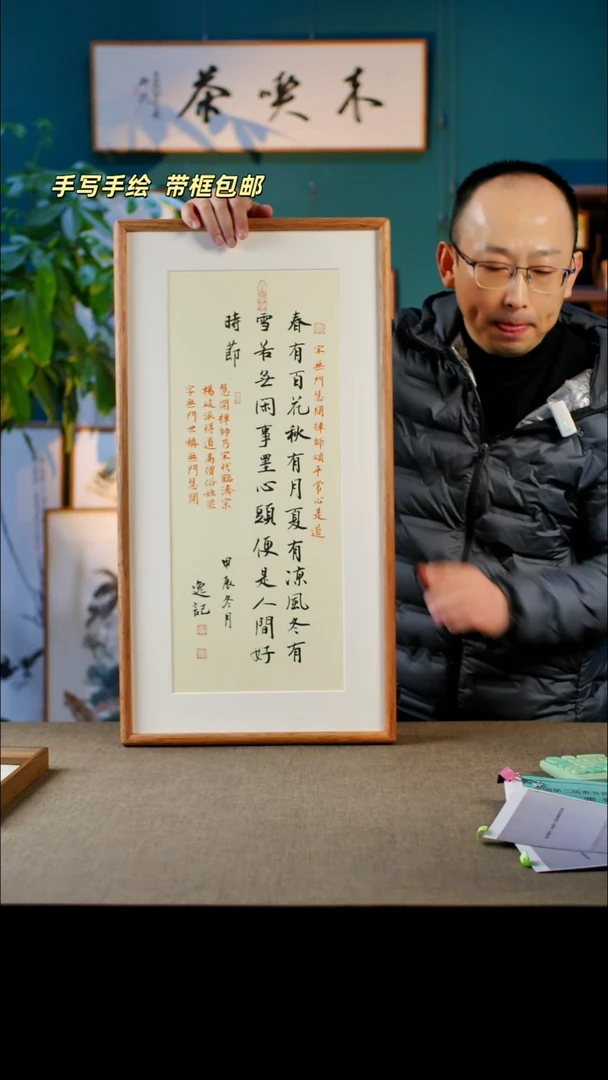 喫茶
手写手绘 带框包邮
宋無門慧開禪師頌平常心是道
春有百花秋有月夏有凉風冬有
雪若無闲事罣心頭便是人間好
時節
慧開禪師乃宋代臨濟宗
楊岐派得道高僧俗姓梁
字無門世稱無門慧開
甲辰冬月
逸記